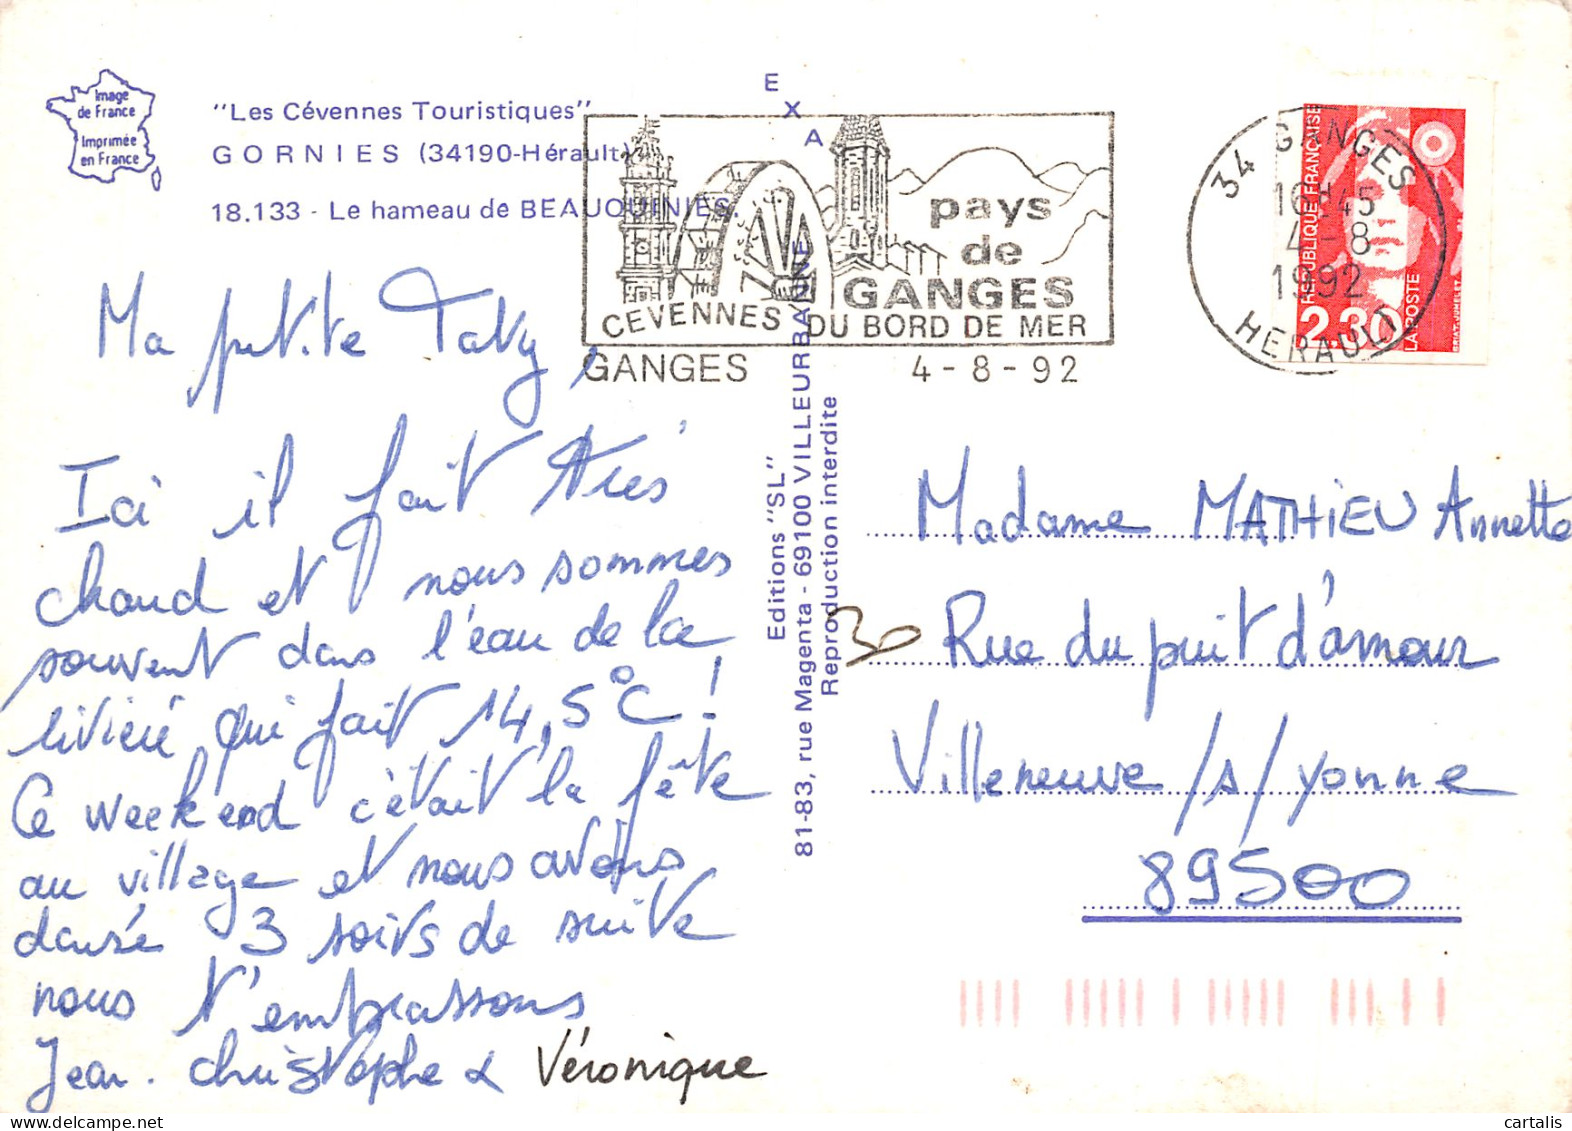 Image
de France
Imprimée
en France
"Les Cévennes Touristiques"
GORNIES (34190-Hérault)
18.133 - Le hameau de BEAUQUINIES.
EXA
pays
de
GANGES
CEVENNES DU BORD DE MER
GANGES 4-8-92
34 GANGES
16H45
4-8
1992
HERAULT
REPUBLIQUE FRANÇAISE
2.30
LA POSTE
BRIAT-JUMELET
Ma petite Taty,
Ici il fait très
chaud et nous sommes
souvent dans l'eau de la
rivière qui fait 14,5°C !
Ce week end c'était la fête
au village et nous avons
dansé 3 soirs de suite
nous t'embrassons
Jean. Christophe & Véronique
Editions "SL"
81-83, rue Magenta - 69100 VILLEURBANNE
Reproduction interdite
Madame MATHIEU Annette
30 Rue du puit d'amour
Villeneuve /s/ yonne
89500
cartalis